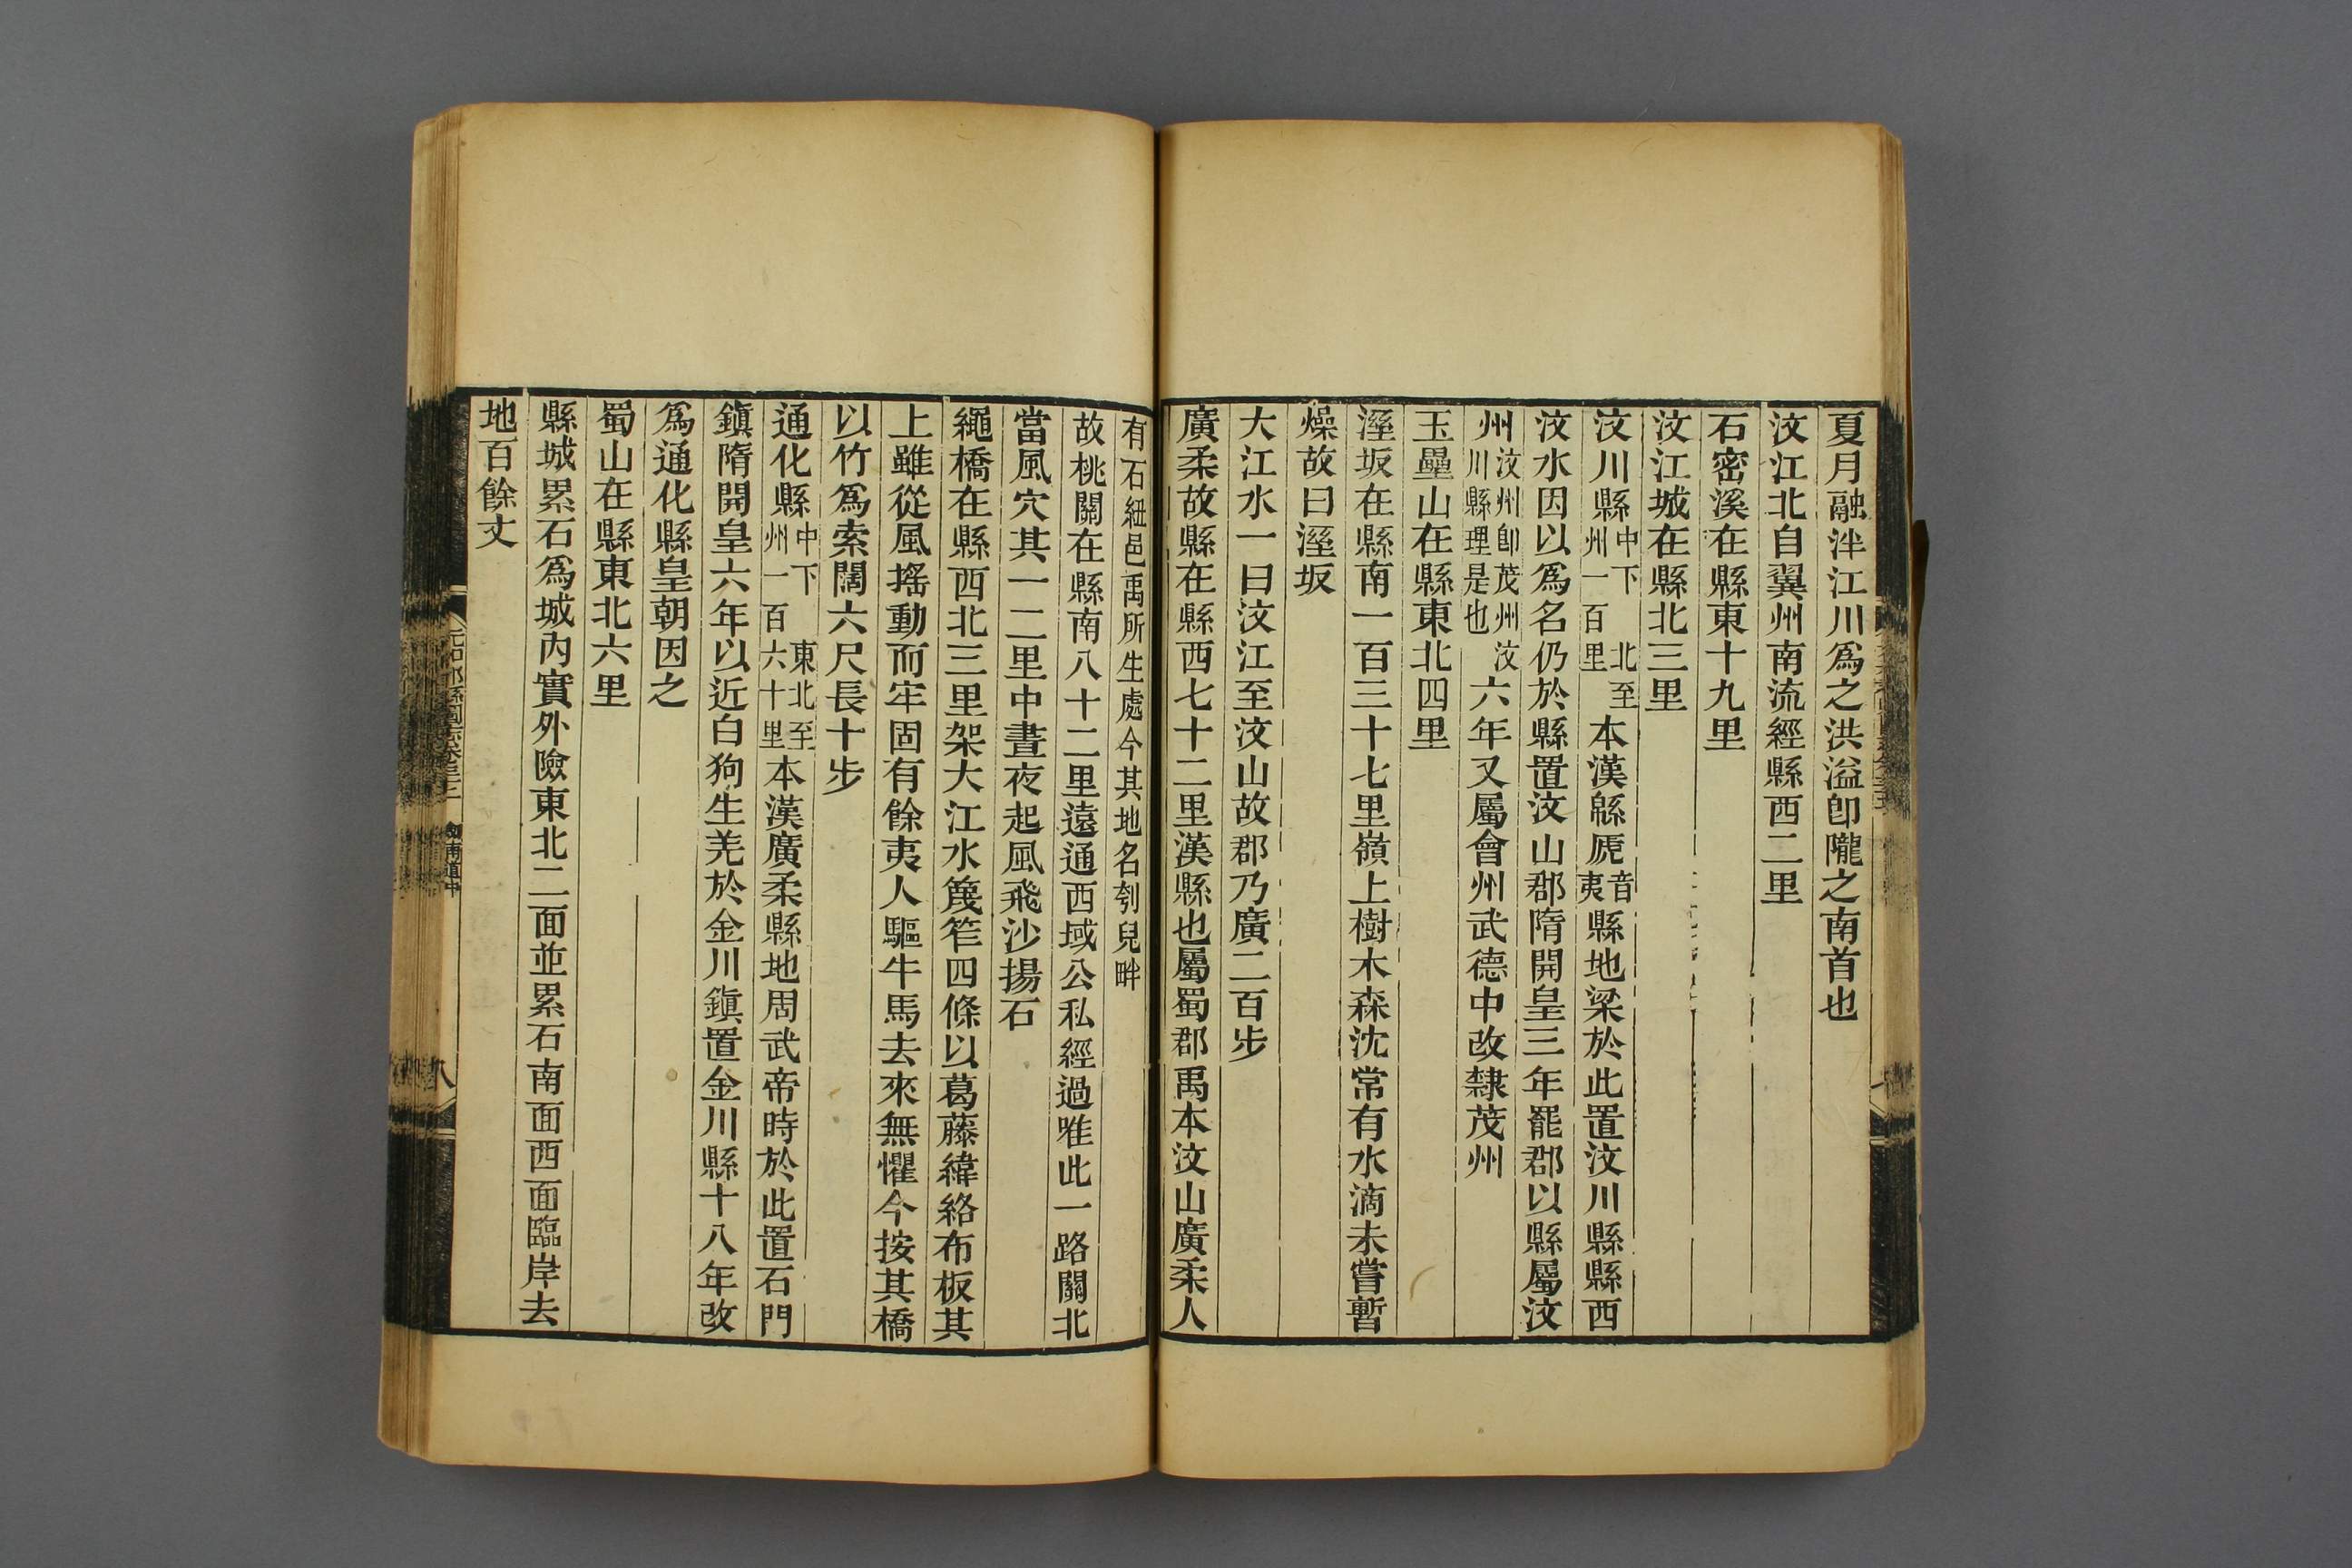 夏月融泮江川爲之洪溢卽隴之南首也
汶江北自翼州南流經縣西二里
石密溪在縣東十九里
汶江城在縣北三里
汶川縣中下 北至州一百里本漢緜虒音夷縣地梁於此置汶川縣縣西
汶水因以爲名仍於縣置汶山郡隋開皇三年罷郡以縣屬汶
州汶州卽茂州汶川縣理是也六年又屬會州武德中改隸茂州
玉壘山在縣東北四里
溼坂在縣南一百三十七里嶺上樹木森沈常有水滴未嘗暫
燥故曰溼坂
大江水一曰汶江至汶山故郡乃廣二百步
廣柔故縣在縣西七十二里漢縣也屬蜀郡禹本汶山廣柔人
有石紐邑禹所生處今其地名刳兒畔
故桃關在縣南八十二里遠通西域公私經過唯此一路關北
當風穴其一二里中晝夜起風飛沙揚石
繩橋在縣西北三里架大江水篾笮四條以葛藤緯絡布板其
上雖從風搖動而牢固有餘夷人驅牛馬去來無懼今按其橋
以竹爲索闊六尺長十步
通化縣中下 東北至州一百六十里本漢廣柔縣地周武帝時於此置石門
鎮隋開皇六年以近白狗生羌於金川鎮置金川縣十八年改
爲通化縣皇朝因之
蜀山在縣東北六里
縣城累石爲城內實外險東北二面並累石南面西面臨岸去
地百餘丈
元和郡縣圖志卷三十二 劍南道中 八